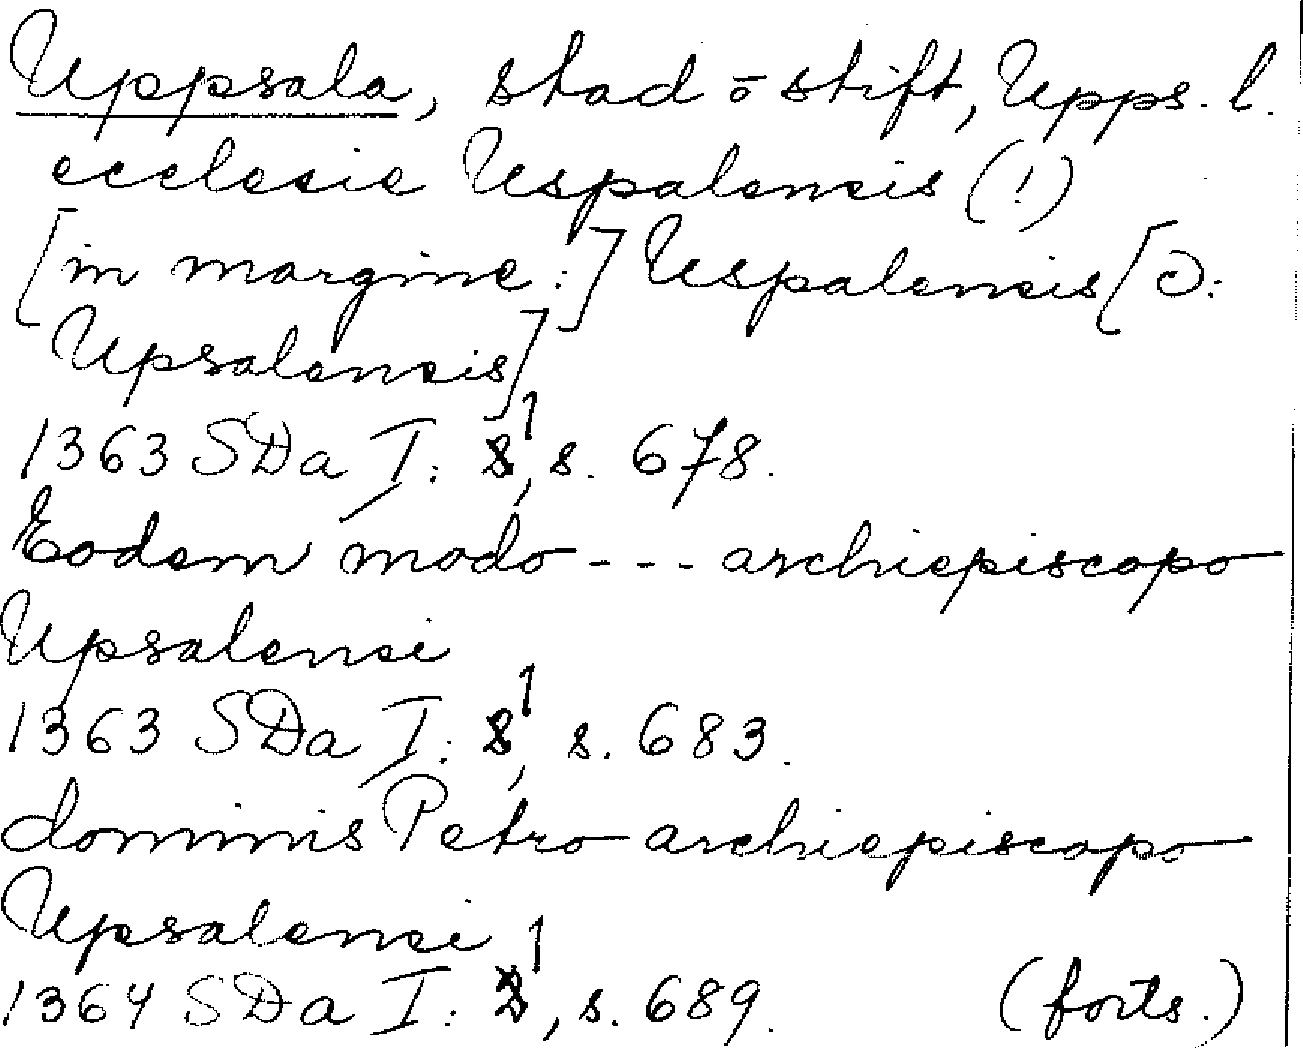 Uppsala, stad o stift, Upps. l.
ecclesie Uspalensis (!)
[in margine:] Uspalensis [ɔ:
Upsalensis]
1363 SDa I: 1, s. 678.
Eodem modo --- archiepiscopo
Upsalensi
1363 SDa I: 1, s. 683.
dominis Petro archiepiscopo
Upsalensi
1364 SDa I: 1, s. 689. (forts.)